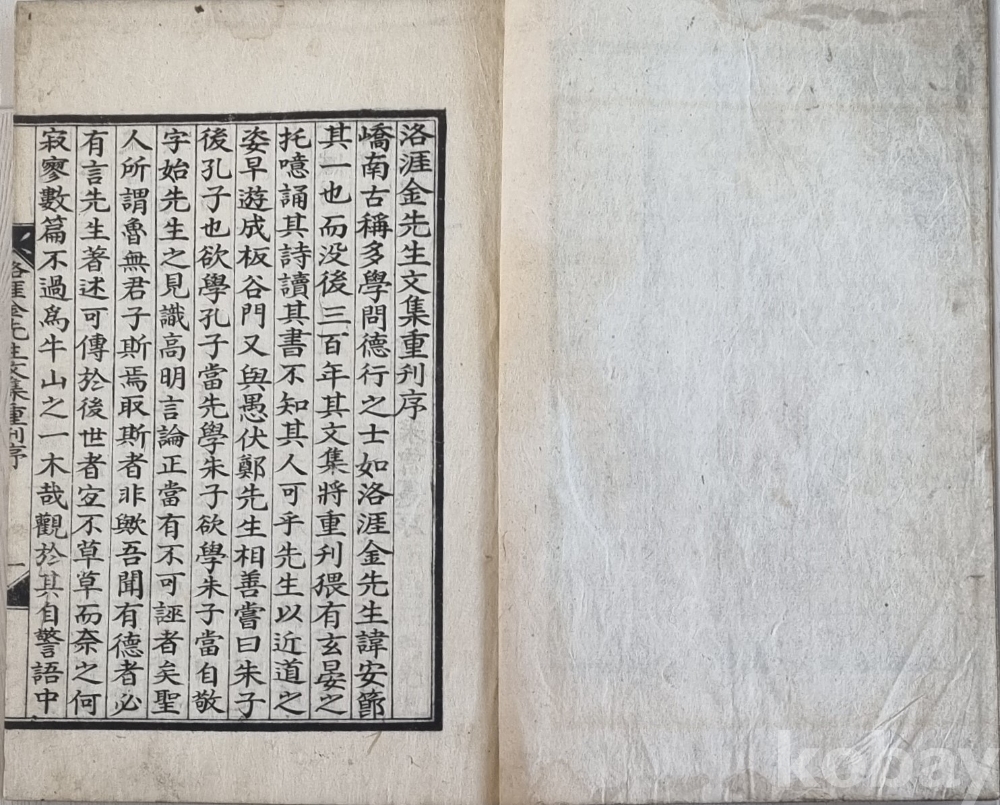 洛涯金先生文集重刊序
嶠南古稱多學問德行之士如洛涯金先生諱安節
其一也而没後三百年其文集將重刋猥有玄晏之
托噫誦其詩讀其書不知其人可乎先生以近道之
姿早遊成板谷門又與愚伏鄭先生相善嘗曰朱子
後孔子也欲學孔子當先學朱子欲學朱子當自敬
字始先生之見識高明言論正當有不可誣者矣聖
人所謂魯無君子斯焉取斯者非歟吾聞有德者必
有言先生著述可傳於後世者宐不草草而奈之何
寂寥數篇不過爲牛山之一木哉觀於其自警語中
洛涯金先生文集重刊序
一
kobay